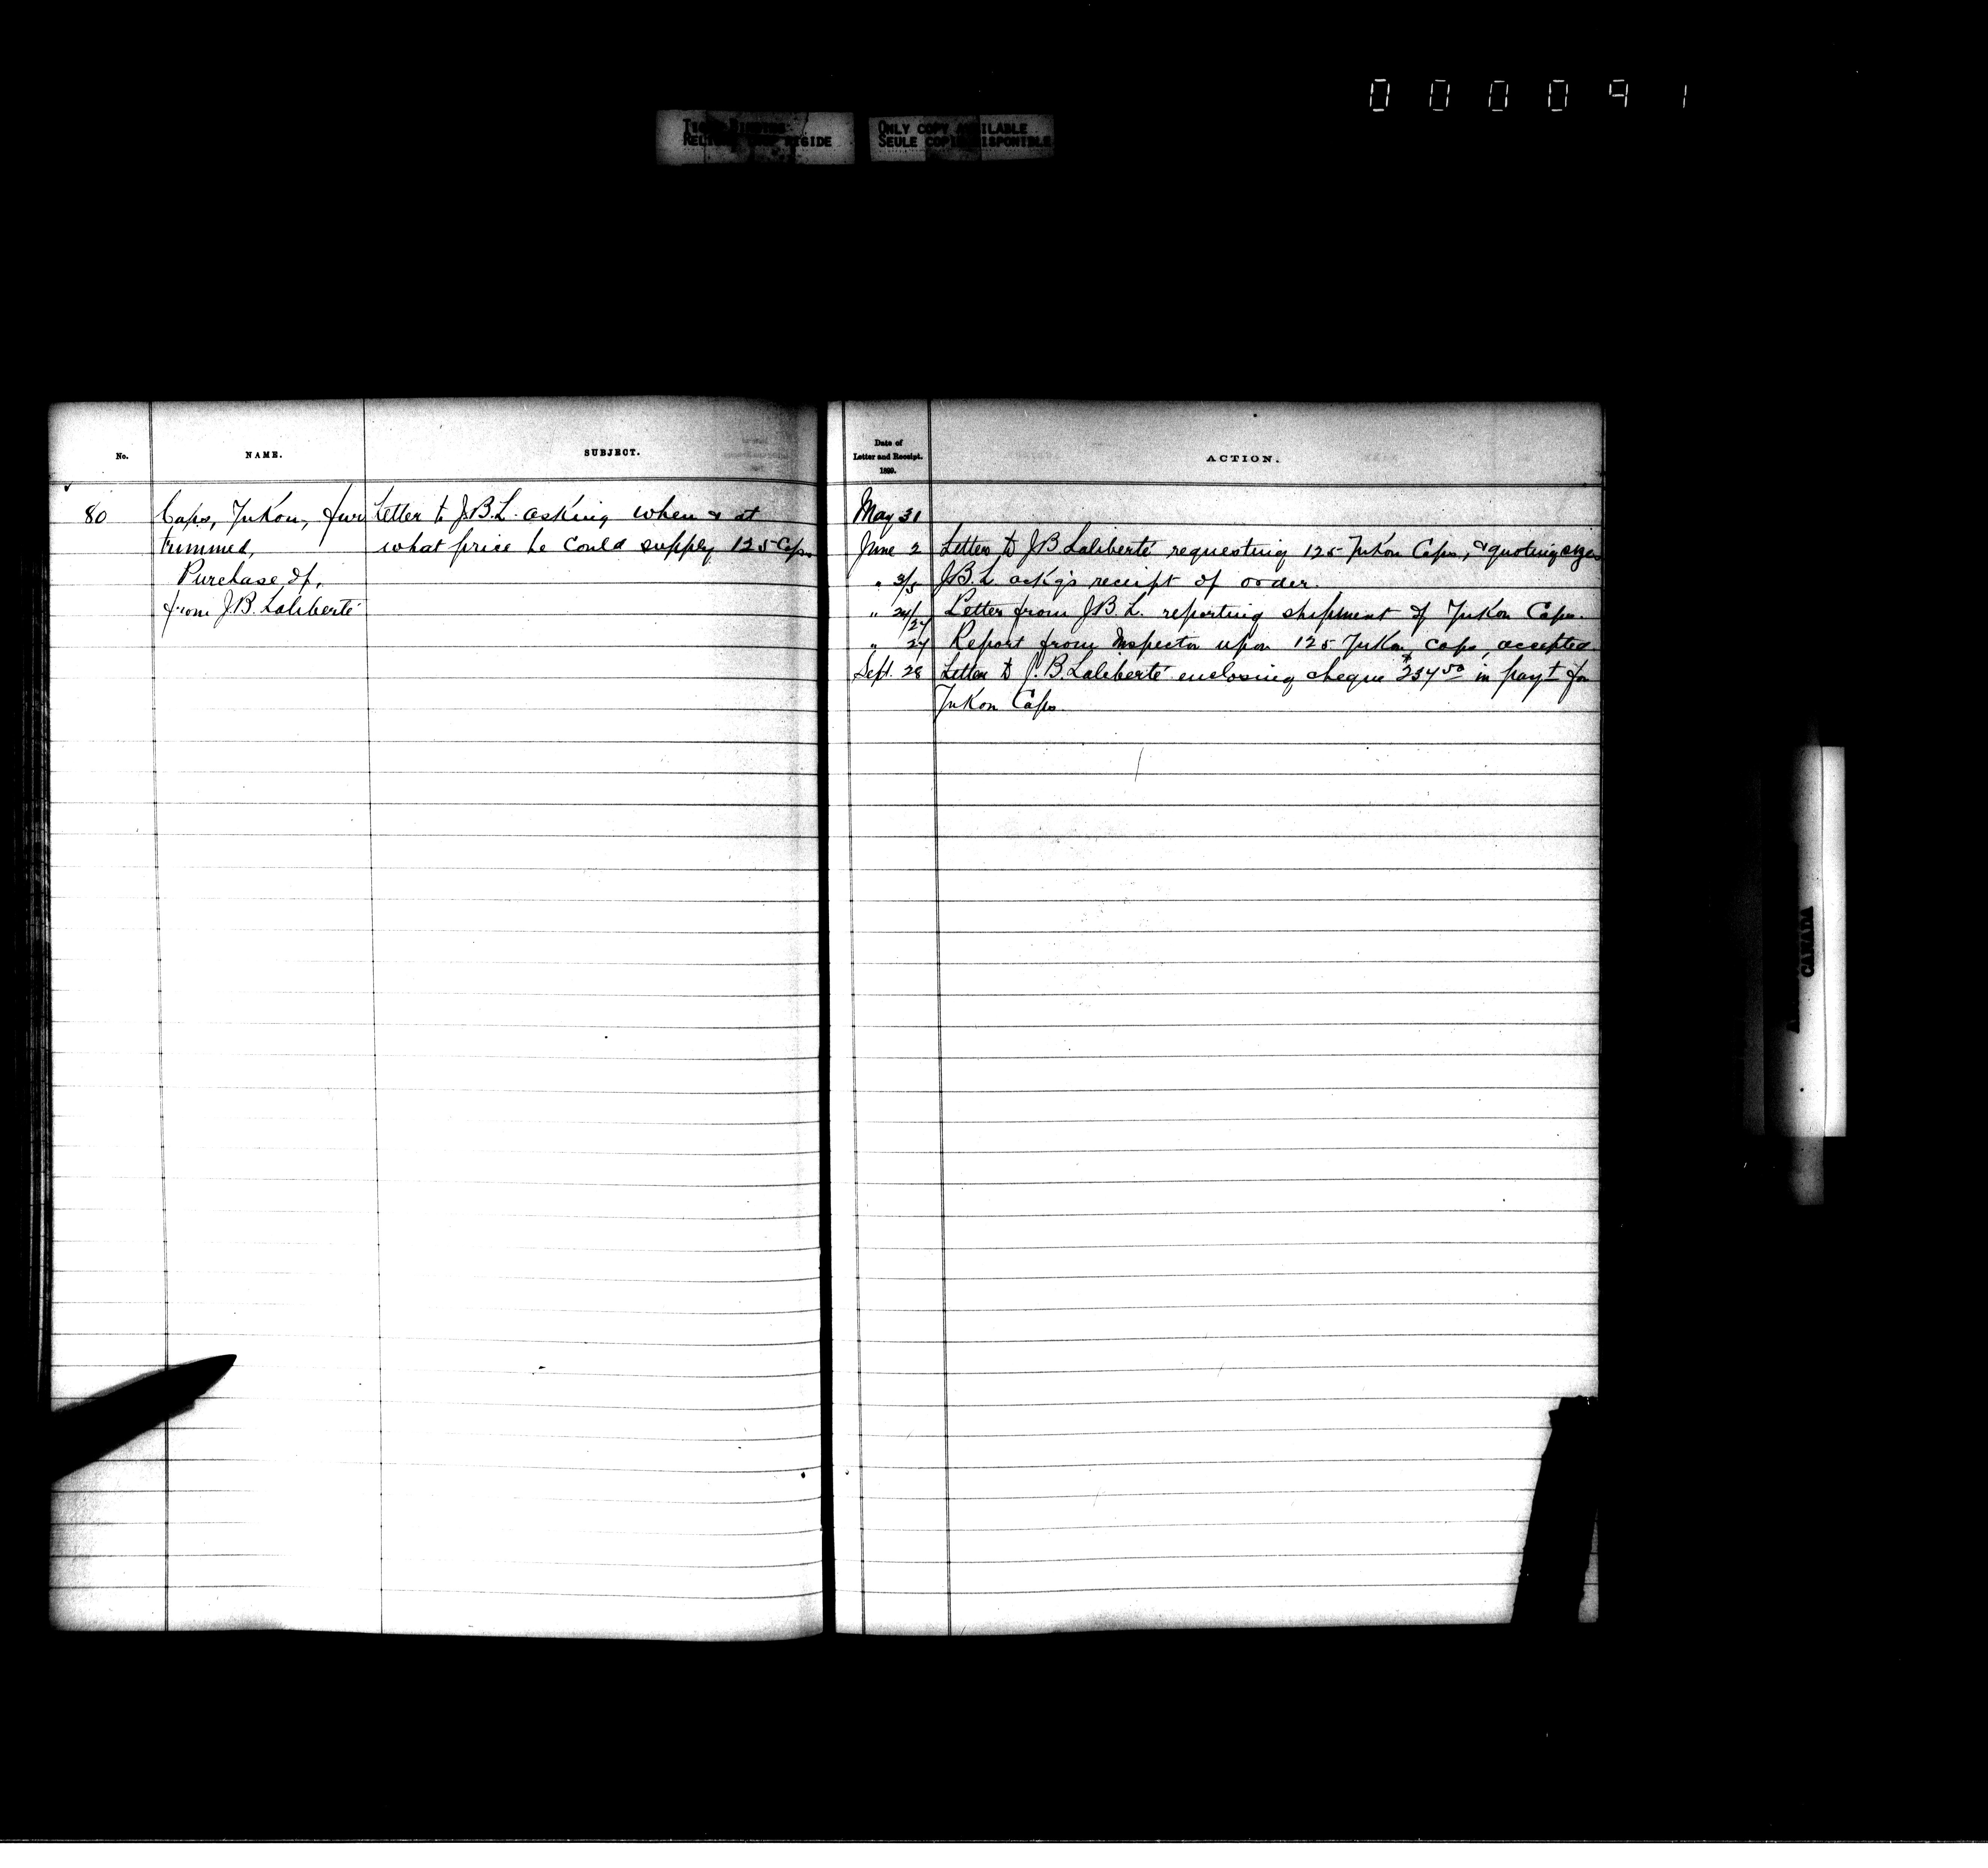 0 0 0 0 9 1
ONLY COPY AVAILABLE
SEULE COPIE DISPONIBLE
No.
NAME.
SUBJECT.
80
Caps, Yukon, fur
trimmed,
Purchase of,
from J.B. Laliberté
Letter to J.B.L. asking when & at
what price he could supply 125 Caps
Date of
Letter and Receipt.
1899.
ACTION.
May 31
June 2 Letter to J B Laliberté requesting 125 Yukon Caps, & quoting sizes
" 3/5 J.B.L ackg's receipt of order.
" 24/27 Letter from J.B.L. reporting shipment of Yukon Caps.
" 27 Report from Inspector upon 125 Yukon caps, accepted.
Sept. 28 Letter to J. B. Laliberté enclosing cheque in payt for
Yukon Caps.
CANADA